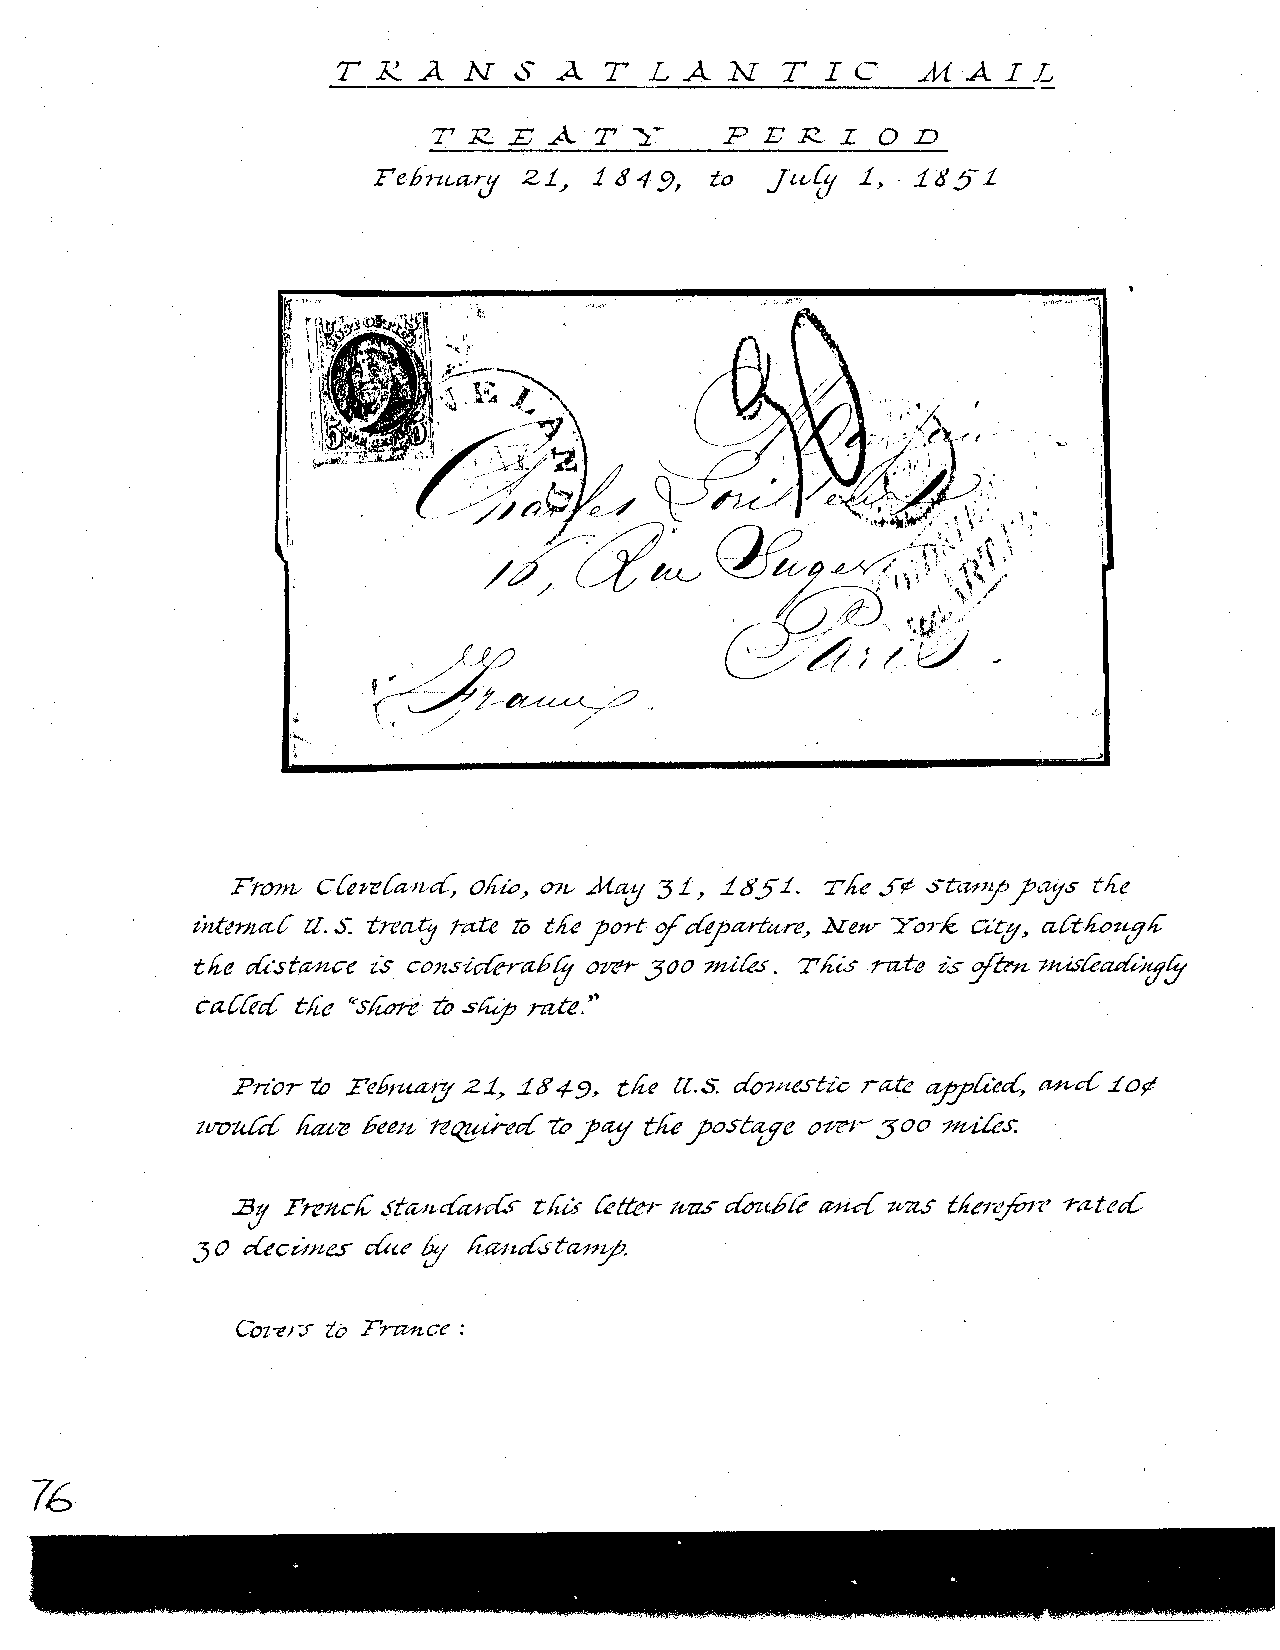 TRANSATLANTIC MAIL
TREATY PERIOD
February 21, 1849, to July 1, 1851
POST OFFICE
5
VELAND
30
Charles
16, Rue Suger
Paris
France
From Cleveland, Ohio, on May 31, 1851. The 5¢ stamp pays the
internal U.S. treaty rate to the port of departure, New York City, although
the distance is considerably over 300 miles. This rate is often misleadingly
called the "shore to ship rate."
Prior to February 21, 1849, the U.S. domestic rate applied, and 10¢
would have been required to pay the postage over 300 miles.
By French standards this letter was double and was therefore rated
30 decimes due by handstamp.
Covers to France :
76